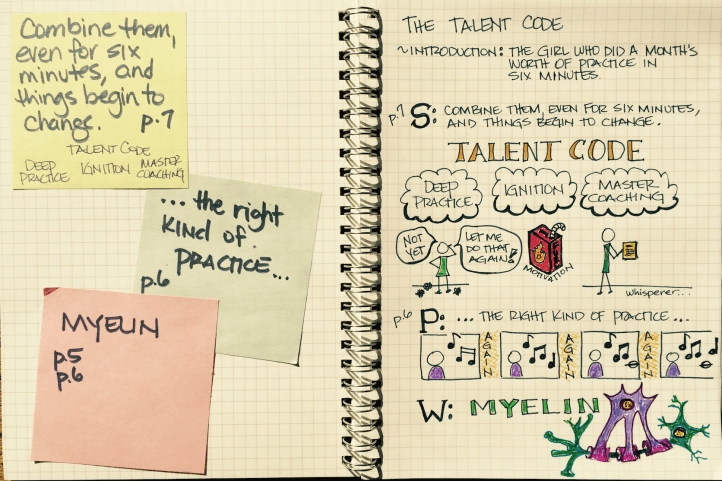 Combine them,
even for six
minutes, and
things begin to
change. p.7
TALENT CODE
DEEP PRACTICE IGNITION MASTER COACHING
... the right
KIND OF
PRACTICE...
p.6
MYELIN
p.5
p.6
THE TALENT CODE
~INTRODUCTION: THE GIRL WHO DID A MONTH'S
WORTH OF PRACTICE IN
SIX MINUTES.
p.7 S: COMBINE THEM, EVEN FOR SIX MINUTES,
AND THINGS BEGIN TO CHANGE.
TALENT CODE
DEEP PRACTICE
IGNITION
MASTER COACHING
NOT YET
LET ME DO THAT AGAIN!
MOTIVATION
whisperer...
p.6 P: ... THE RIGHT KIND OF PRACTICE...
AGAIN AGAIN AGAIN
W: MYELIN